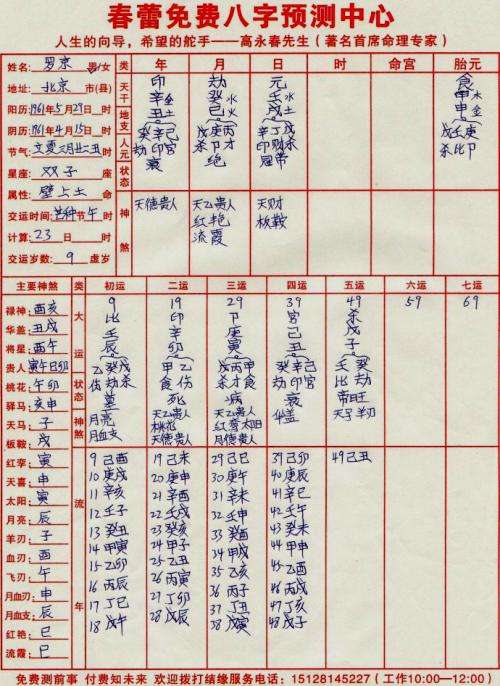 春蕾免费八字预测中心
人生的向导，希望的舵手——高永春先生（著名首席命理专家）
姓名：罗京 男/女 类 年 月 日 时 命宫 胎元
天干 印 劫 元 食
地址：北京 市(县) 辛金 癸水 壬水 甲木
阳历：1961年5月29日 时 地支 丑土 巳火 戌土 申金
阴历：1961年4月15日 时 人元 癸辛己 戊庚丙 辛丁戊 戊壬庚
劫印官 杀卩才 印财杀 杀比卩
状态 衰 绝 冠带
星座：双子 座
属性：壁上土 命
交运时间：芒种节 午 时 神煞 天德贵人 天乙贵人 天财
红艳 板鞍
流霞
计算：23 日 时
交运岁数：9 虚岁
主要神煞 类 初运 二运 三运 四运 五运 六运 七运
大运 9 19 29 39 49 59 69
比 印 卩 官 杀
壬 辛 庚 己 戊
辰 卯 寅 丑 子
乙癸戊 甲乙 戊丙甲 癸辛己 壬癸
伤劫杀 食伤 杀才食 劫印官 比劫
状态 墓 死 病 衰 帝旺
神煞 月亮 天乙贵人 天乙贵人 华盖 羊刃
月血支 桃花 红鸾太阳
天德贵人 月德贵人
禄神：酉亥
华盖：丑戌
将星：酉午
贵人：寅午巳卯
桃花：午卯
驿马：亥申
天马：子
板鞍：戌
红孪：寅
天喜：申
太阳：寅
月亮：辰
羊刃：子
血刃：酉
飞刃：午
月血刃：申
月血支：辰
红艳：巳
流霞：巳
流年
9己酉 19己未 29己巳 39己卯 49己丑
10庚戌 20庚申 30庚午 40庚辰
11辛亥 21辛酉 31辛未 41辛巳
12壬子 22壬戌 32壬申 42壬午
13癸丑 23癸亥 33癸酉 43癸未
14甲寅 24甲子 34甲戌 44甲申
15乙卯 25乙丑 35乙亥 45乙酉
16丙辰 26丙寅 36丙子 46丙戌
17丁巳 27丁卯 37丁丑 47丁亥
18戊午 28戊辰 38戊寅 48戊子
免费测前事 付费知未来 欢迎拨打结缘服务电话：15128145227（工作10:00—12:00）